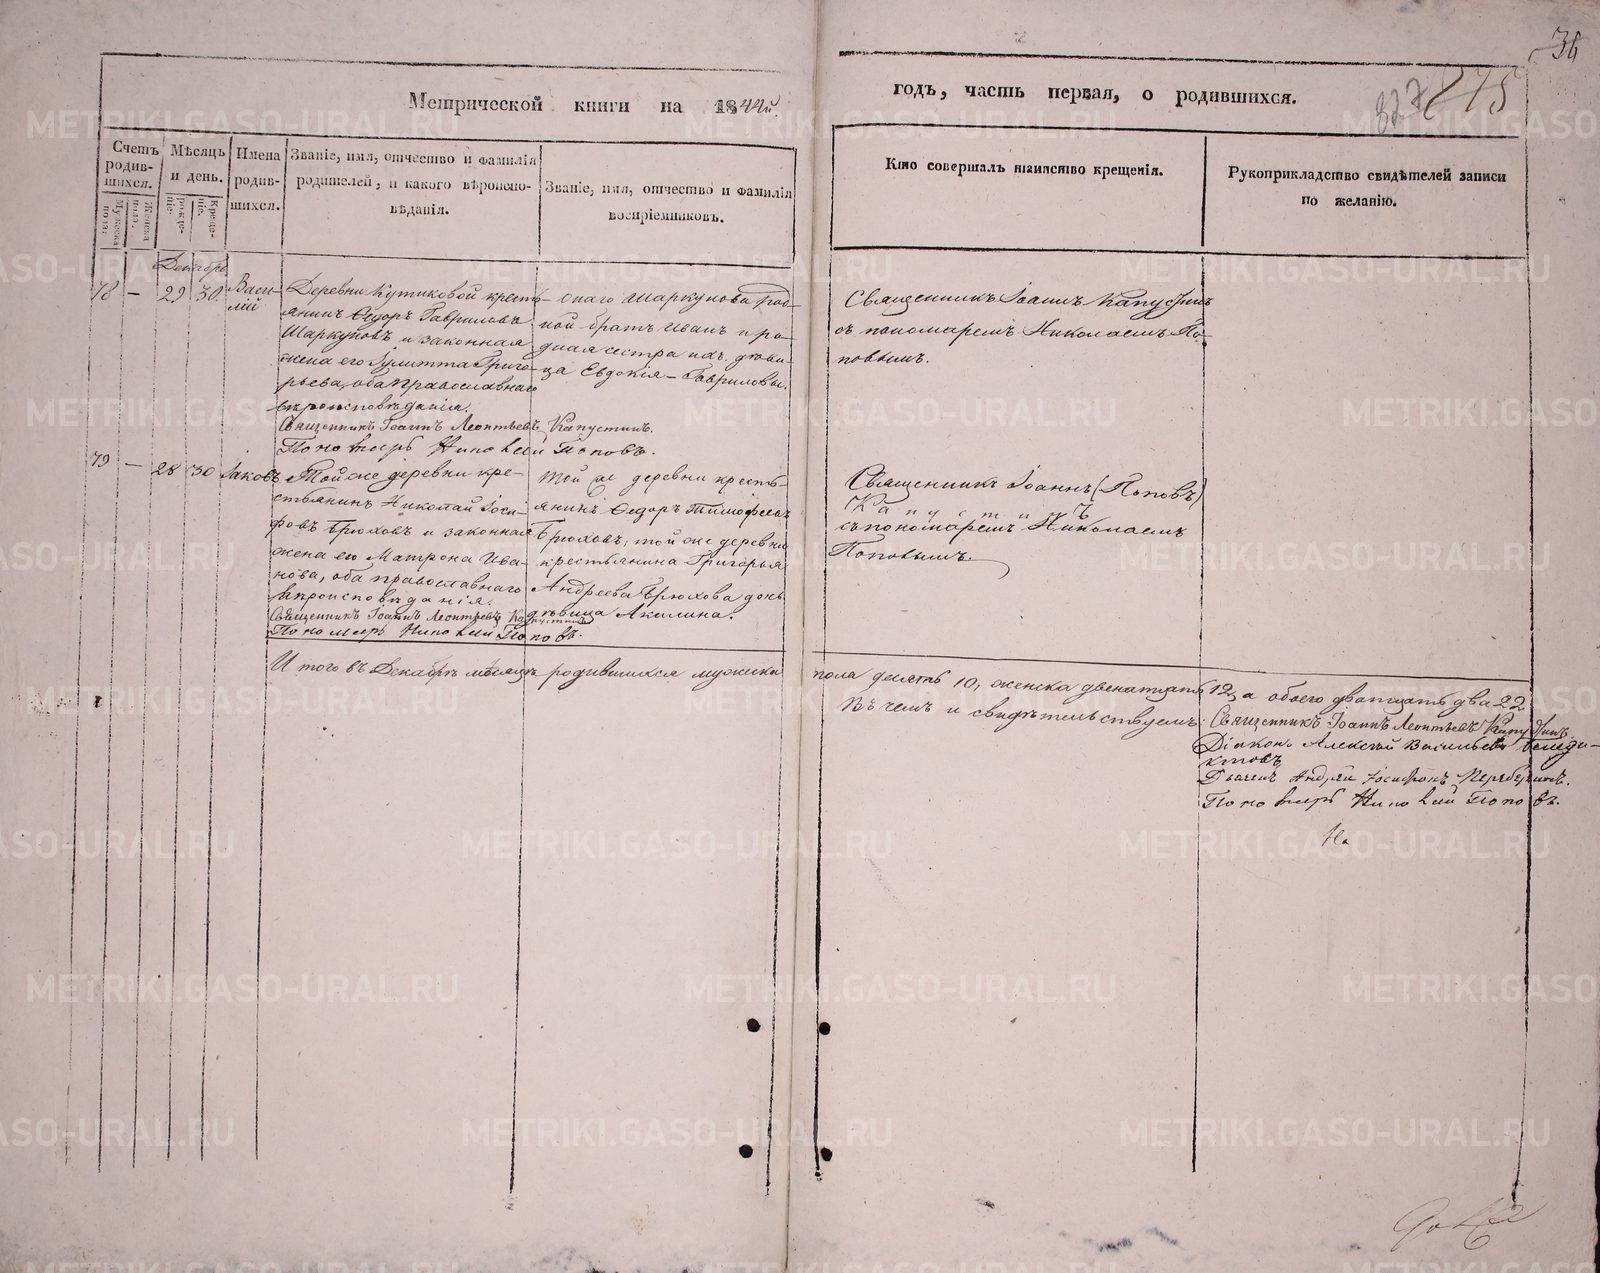 36
Метрической книги на 1844й.
годъ, часть первая, о родившихся.
327
275
Счетъ родив-шихся.
Мужеска пола.
Женска пола.
Мѣсяцъ и день.
рожде-ніе.
Креще-ніе.
Имена родив-шихся.
Званіе, имя, отчество и фамилія
родителей, и какого вѣроиспо-
вѣданія.
Званіе, имя, отчество и фамилія
воспріемниковъ.
Кто совершалъ таинство крещенія.
Рукоприкладство свидѣтелей записи
по желанію.
Декабрь
78 — 29 30
Васи-
лій
Деревни Кутиковой кресть-
янинъ Ѳедоръ Гавриловъ
Шаркуновъ и законная
жена его Іулитта Григо-
рьева, оба православнаго
вѣроисповѣданія.
Священникъ Іоаннъ Леонтьевъ Капустинъ.
Пономарь Николай Поповъ.
онаго Шаркунова род-
ной братъ Иванъ и ро-
дная сестра ихъ дѣви-
ца Евдокія — Гавриловы.
Священникъ Іоаннъ Капустинъ
съ пономаремъ Николаемъ По-
повымъ.
79 — 28 30
Іаковъ
Той же деревни кре-
стьянинъ Николай Іоси-
фовъ Брюховъ и законная
жена его Матрона Ива-
нова, оба православнаго
вѣроисповѣданія.
Священникъ Іоаннъ Леонтьевъ Капустинъ
Пономарь Николай Поповъ.
той же деревни кресть-
янинъ Ѳедоръ Тимофеевъ
Брюховъ, той же деревни
крестьянина Григорья
Андреева Брюхова дочь
дѣвица Акилина.
Священникъ Іоаннъ (Поповъ)
Капустинъ
съ пономаремъ Николаемъ
Поповымъ.
И того въ Декабрѣ мѣсяцѣ родившихся мужеска
пола десять 10, женска двенатцать 12, а обоего дватцать два 22
Въ чемъ и свидѣтельствуемъ:
Священникъ Іоаннъ Леонтьевъ Капустинъ.
Діаконъ Алексѣй Васильевъ Бенеди-
ктовъ
Пономарь Николай Поповъ.
На
METRIKI.GASO-URAL.RU